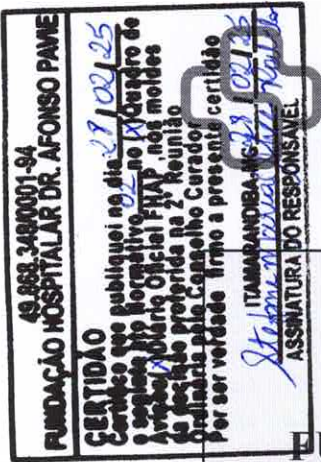 49.888.348/0001-94
FUNDAÇÃO HOSPITALAR DR. AFONSO PAVIE
CERTIDÃO
Certifico que publiquei no dia 28/02/25
o seguinte Ato Normativo 02 no (X) Quadro de
Avisos (X) Diário Oficial FHAP, nos moldes
da decisão proferida na 2ª Reunião
Ordinária pelo Conselho Curador
Por ser verdade firmo a presente certidão
ITAMARANDIBA-MG 28/02/25
ASSINATURA DO RESPONSÁVEL
FU